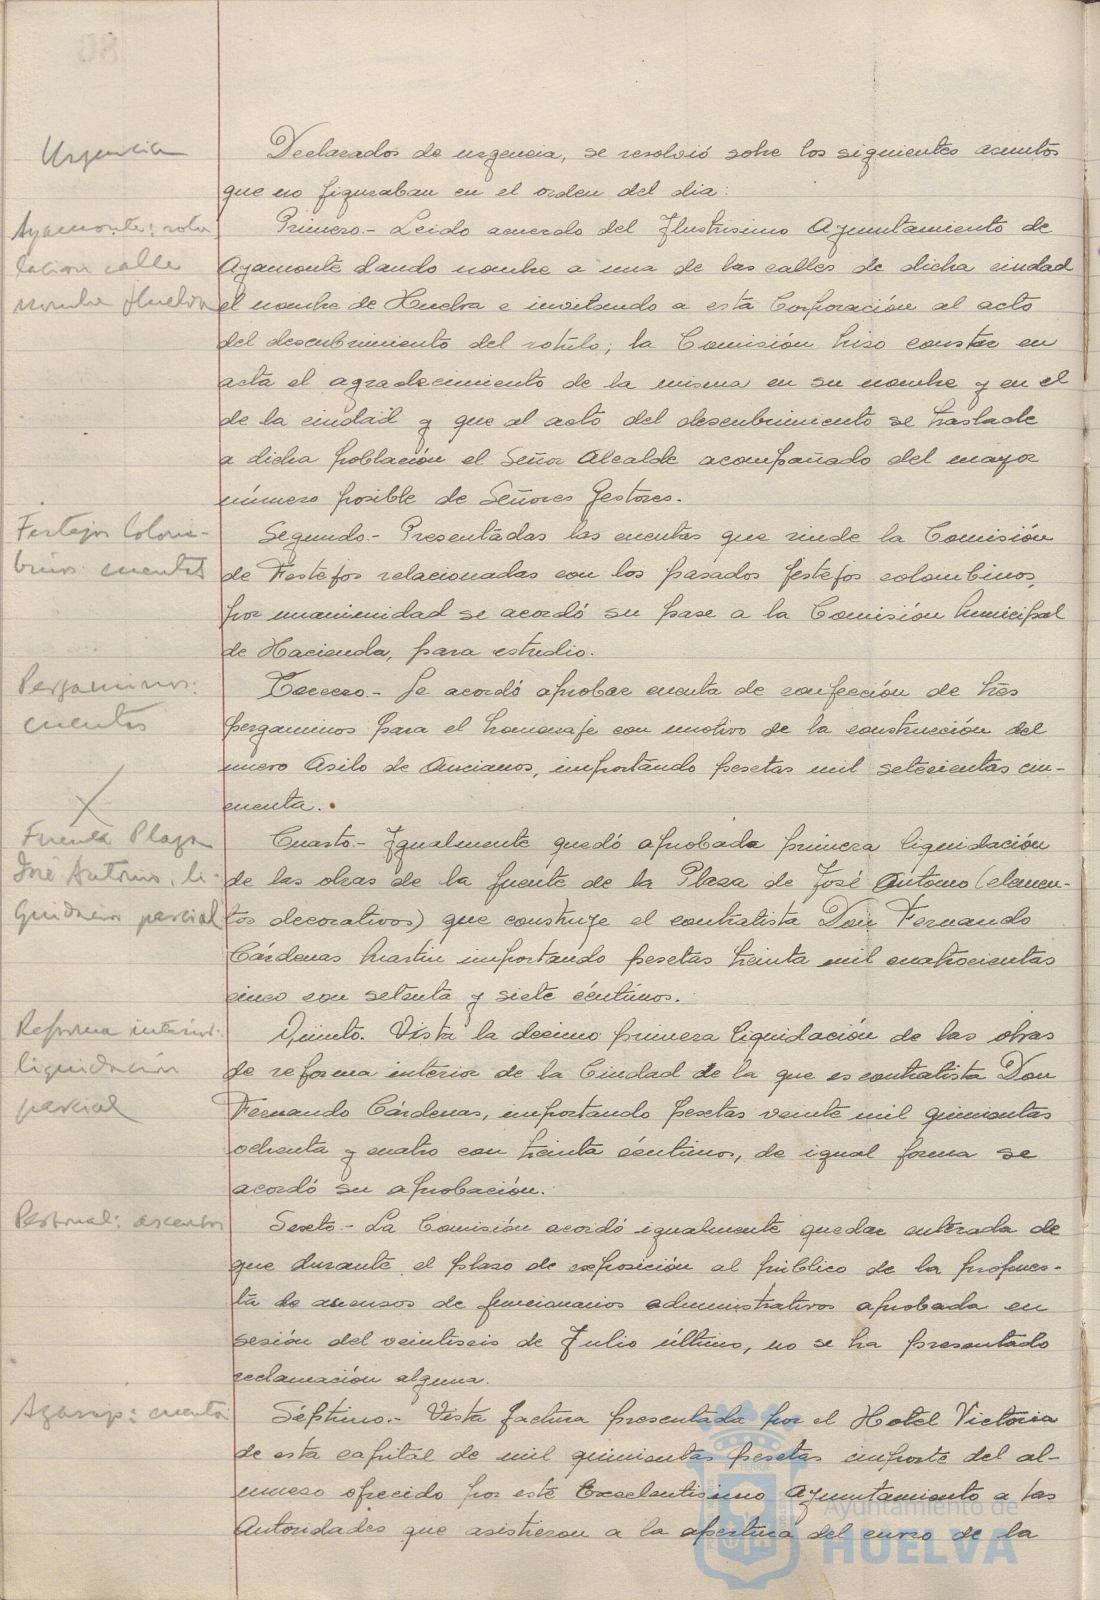 Urgencia
Declarados de urgencia, se resolvió sobre los siguientes asuntos
que no figuraban en el orden del dia:
Ayamonte: rotu
lacion calle
nombre Huelva
Primero.- Leido acuerdo del Ilustrisimo Ayuntamiento de
Ayamonte dando nombre a una de las calles de dicha ciudad
el nombre de Huelva e invitando a esta Corporación al acto
del descubrimiento del rotulo; la Comisión hizo constar en
acta el agradecimiento de la misma en su nombre y en el
de la ciudad y que al acto del descubrimiento se traslade
a dicha población el Señor Alcalde acompañado del mayor
número posible de Señores Gestores.
Festejos Colom-
binos: cuentas
Segundo.- Presentadas las cuentas que rinde la Comisión
de Festejos relacionadas con los pasados festejos colombinos,
por unanimidad se acordó su pase a la Comisión Municipal
de Hacienda, para estudio.
Pergaminos:
cuentas
Tercero.- Se acordó aprobar cuenta de confección de tres
pergaminos para el homenaje con motivo de la construcción del
nuevo Asilo de Ancianos, importando pesetas mil setecientas cin-
cuenta.
Fuente Plaza
José Antonio, li-
quidación parcial
Cuarto.- Igualmente quedó aprobada primera liquidación
de las obras de la fuente de la Plaza de José Antonio (elemen-
tos decorativos) que construye el contratista Don Fernando
Cárdenas Martin importando pesetas treinta mil cuatrocientas
cinco con setenta y siete céntimos.
Reforma interior:
liquidación
parcial
Quinto. Vista la decimo primera liquidación de las obras
de reforma interior de la Ciudad de la que es contratista Don
Fernando Cárdenas, importando pesetas veinte mil quinientas
ochenta y cuatro con treinta céntimos, de igual forma se
acordó su aprobación.
Personal: ascensos
Sexto.- La Comisión acordó igualmente quedar enterada de
que durante el plazo de exposición al público de la propues-
ta de ascensos de funcionarios administrativos aprobada en
sesión del veintiseis de Julio último, no se ha presentado
reclamación alguna.
Agasajo: cuenta
Séptimo.- Vista factura presentada por el Hotel Victoria
de esta capital de mil quinientas pesetas importe del al-
muerzo ofrecido por este Excelentisimo Ayuntamiento a las
Autoridades que asistieron a la apertura del curso de la
Ayuntamiento de
HUELVA